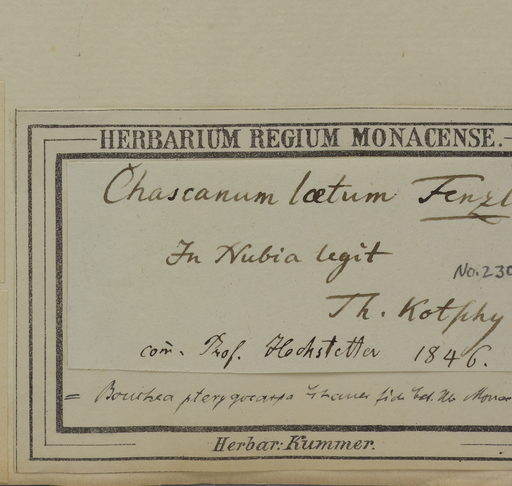 HERBARIUM REGIUM MONACENSE.
Chascanum lætum Fenzl
In Nubia legit
No. 230
Th. Kotschy
com. Prof. Hochstetter 1846.
= Bouchea pterygocarpa Schauer fide
Herbar: Kummer.